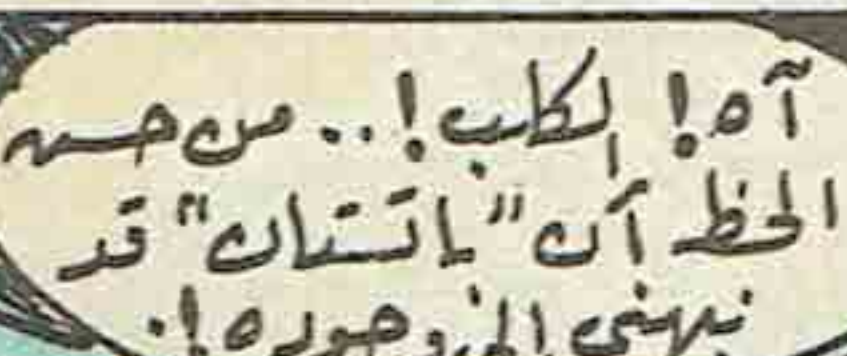 آه! الكلب!.. من حسن
الحظ أن "باتستان" قد
نبهني إلى وجوده!.